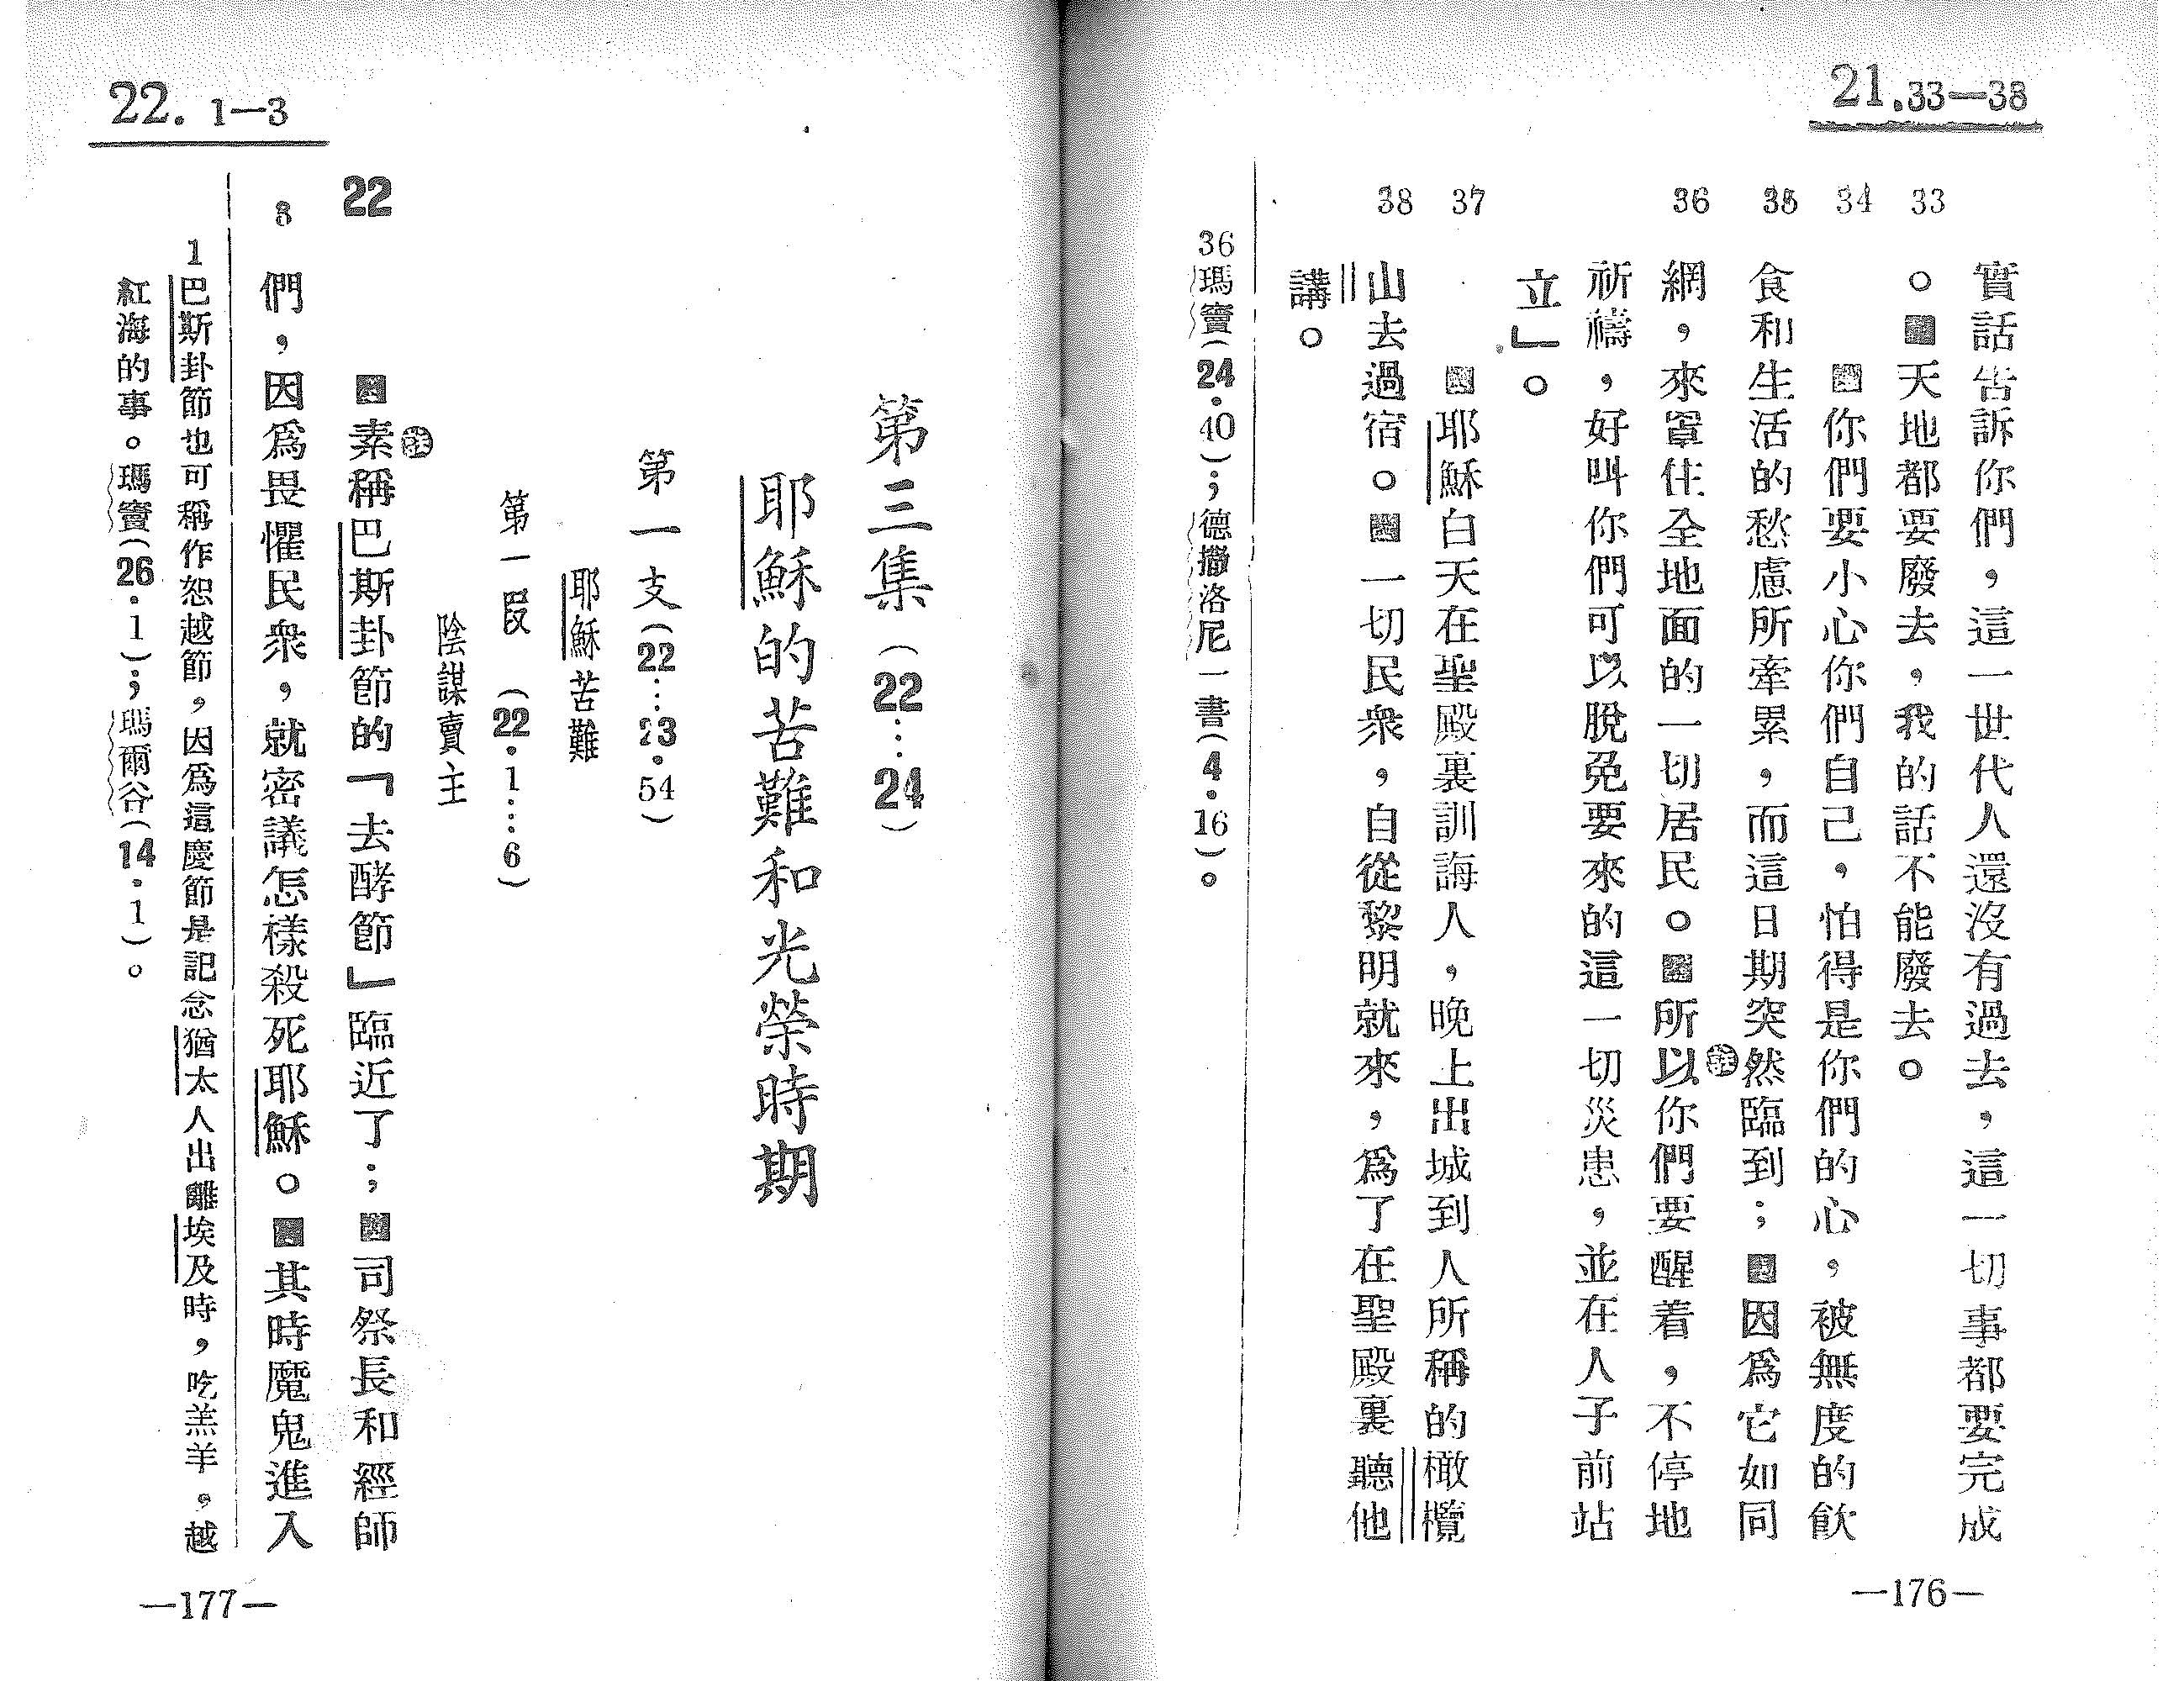 21.33—38
33
34
35
36
37
38
實話告訴你們，這一世代人還沒有過去，這一切事都要完成
。天地都要廢去，我的話不能廢去。
你們要小心你們自己，怕得是你們的心，被無度的飲
食和生活的愁慮所牽累，而這日期突然臨到；因爲它如同
網，來罩住全地面的一切居民。所以你們要醒着，不停地
祈禱，好叫你們可以脫免要來的這一切災患，並在人子前站
立」。
耶穌白天在聖殿裏訓誨人，晚上出城到人所稱的橄欖
山去過宿。一切民衆，自從黎明就來，爲了在聖殿裏聽他
講。
36瑪竇(24·40)；德撒洛尼一書(4·16)。
—176—
22. 1—3
第三集(22……24)
耶穌的苦難和光榮時期
第一支(22……23·54)
耶穌苦難
第一段(22·1……6)
陰謀賣主
22
素稱巴斯卦節的「去酵節」臨近了；司祭長和經師
3
們，因爲畏懼民衆，就密議怎樣殺死耶穌。其時魔鬼進入
1巴斯卦節也可稱作恕越節，因爲這慶節是記念猶太人出離埃及時，吃羔羊，越
紅海的事。瑪竇(26·1)；瑪爾谷(14·1)。
—177—